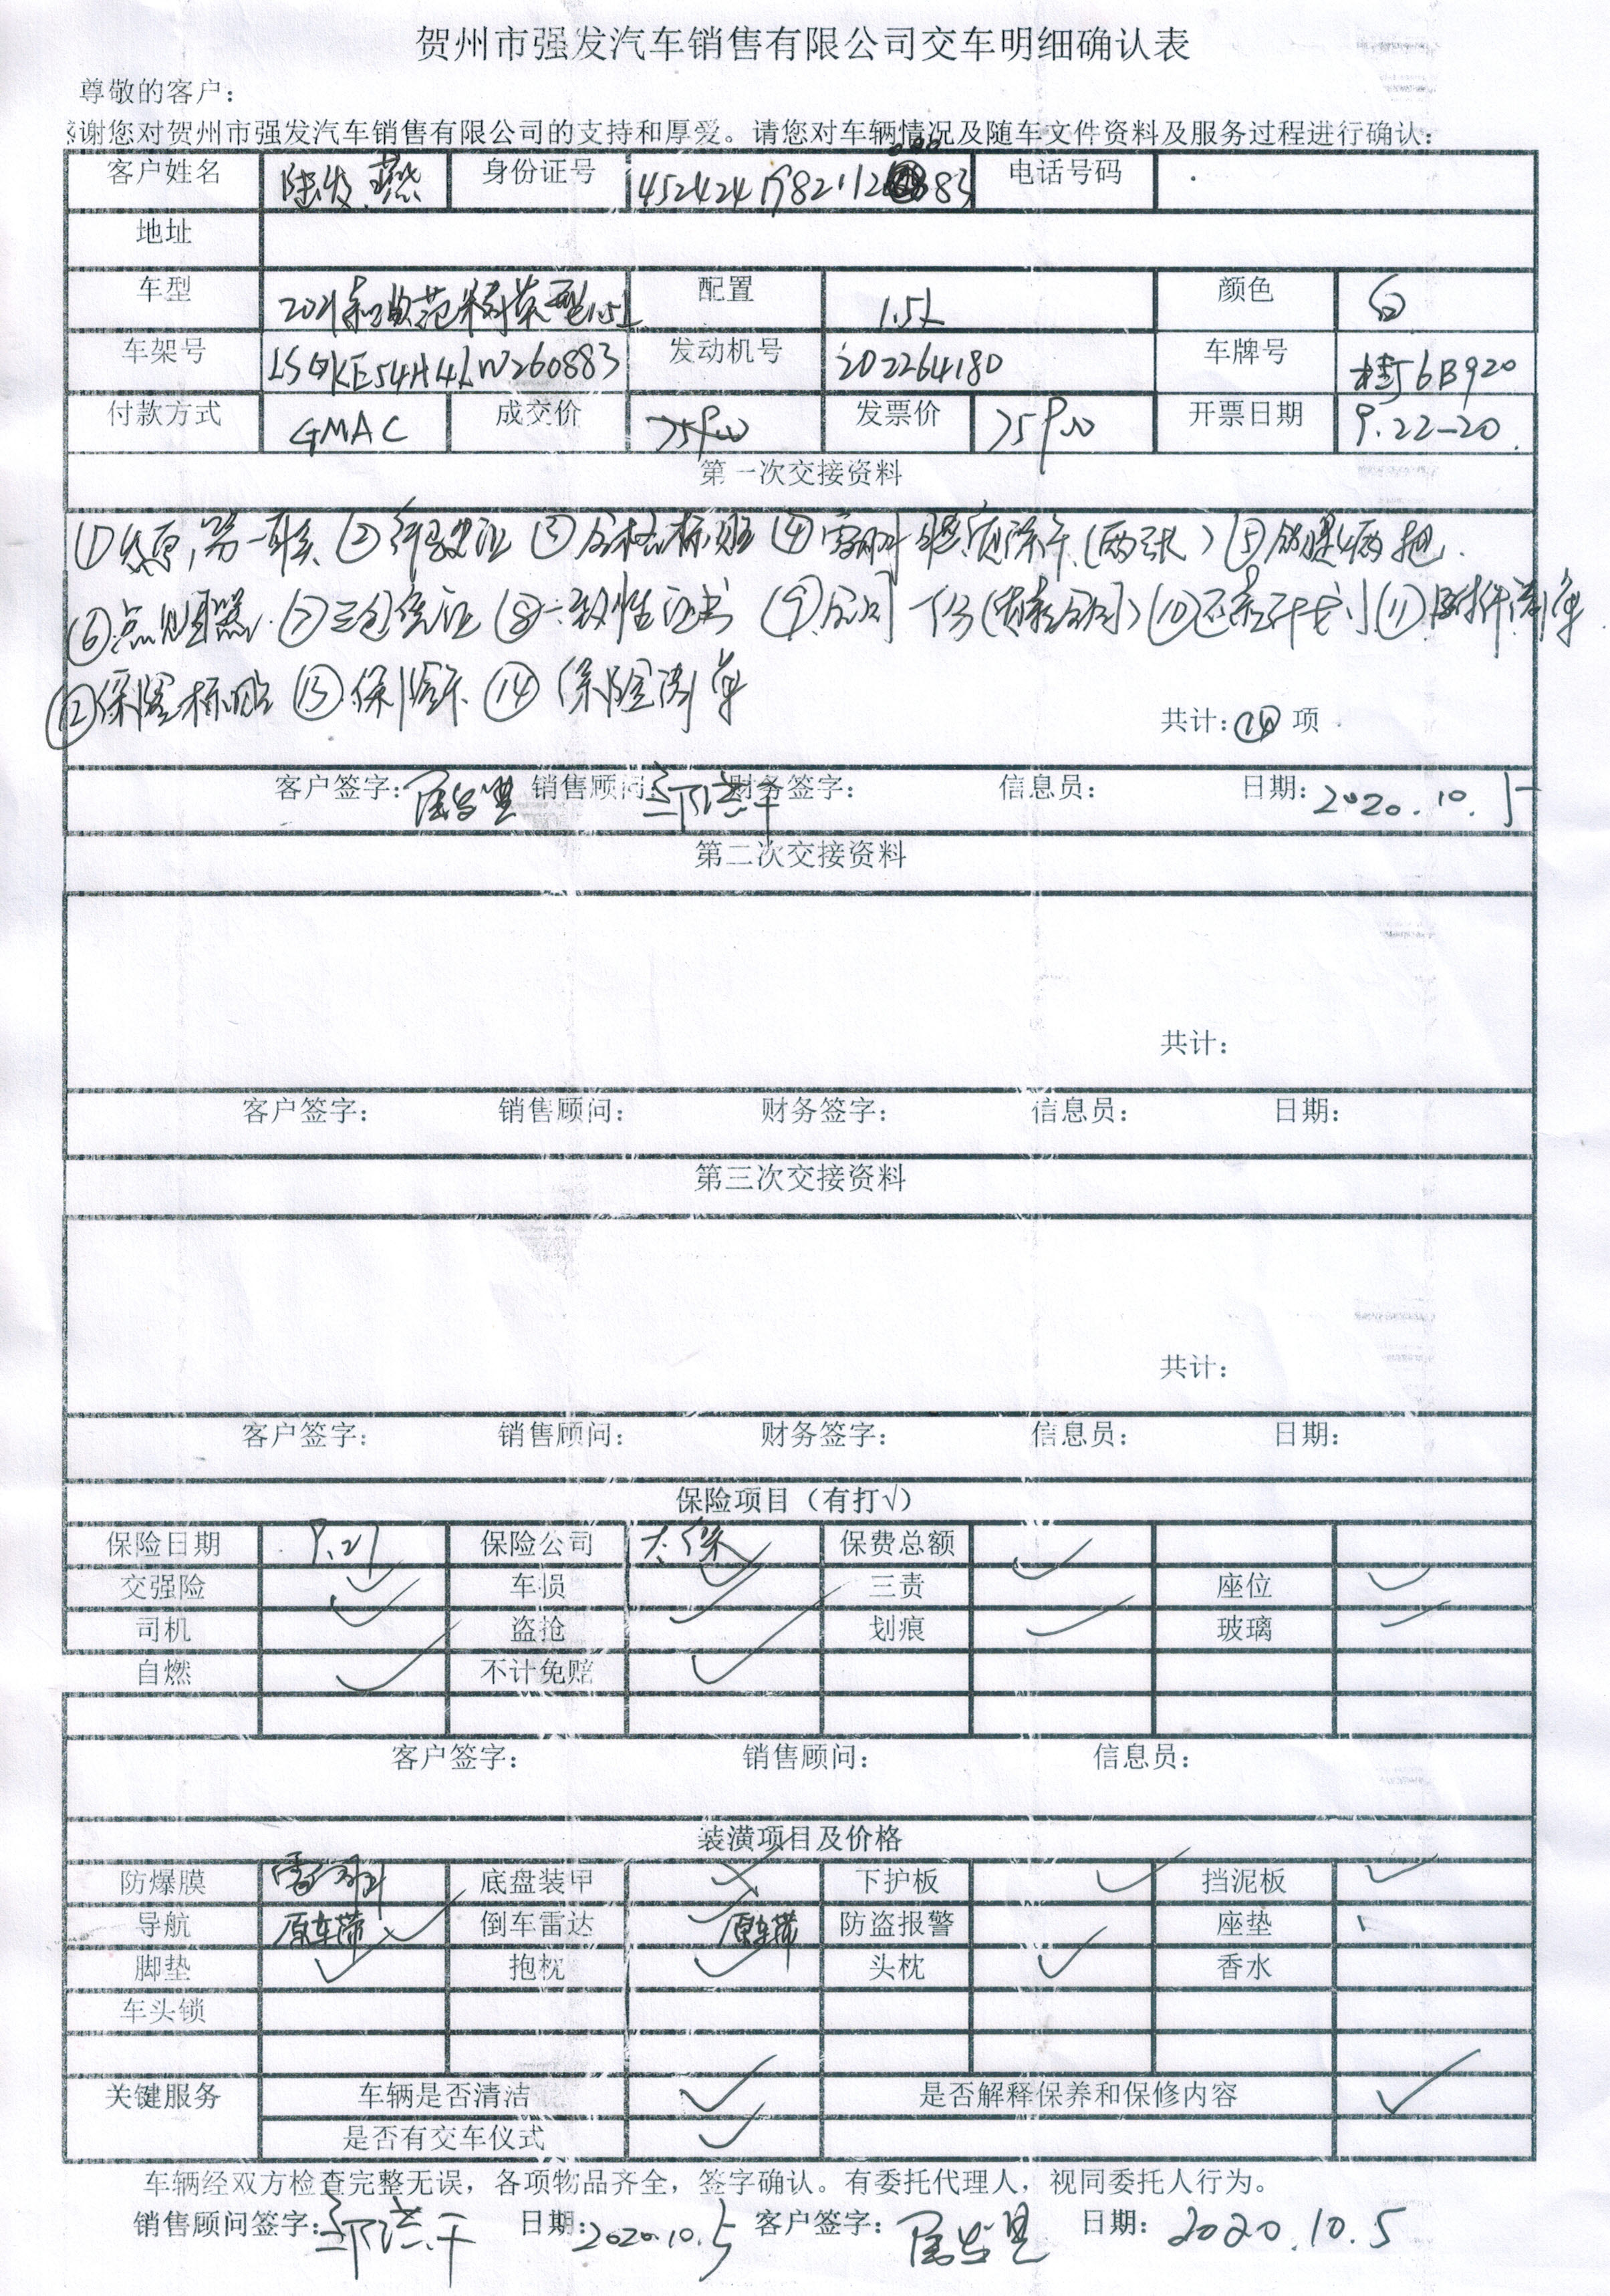 贺州市强发汽车销售有限公司交车明细确认表
尊敬的客户：
感谢您对贺州市强发汽车销售有限公司的支持和厚爱。请您对车辆情况及随车文件资料及服务过程进行确认：
客户姓名 身份证号 电话号码
地址
车型 配置 1.5L 颜色 白
车架号 LSGKE54H4LW260883 发动机号 202264180 车牌号 桂J6B920
付款方式 GMAC 成交价 75900 发票价 75900 开票日期 9.22-20.
第一次交接资料
①发票,第一联 ②行驶证 ③合格标贴 ④雷朋 (两张) ⑤钥匙两把.
⑥点烟器. ⑦三包凭证 ⑧一致性证书 ⑨合同一份 ⑩还款计划 ⑪附件清单
⑫保险标贴 ⑬保险卡 ⑭保险清单
共计：⑭项
客户签字： 销售顾问： 财务签字： 信息员： 日期：2020.10.5
第二次交接资料
共计：
客户签字： 销售顾问： 财务签字： 信息员： 日期：
第三次交接资料
共计：
客户签字： 销售顾问： 财务签字： 信息员： 日期：
保险项目（有打√）
保险日期 9.21 保险公司 太保 保费总额 ✓
交强险 ✓ 车损 ✓ 三责 座位 ✓
司机 ✓ 盗抢 ✓ 划痕 ✓ 玻璃 ✓
自燃 ✓ 不计免赔 ✓
客户签字： 销售顾问： 信息员：
装潢项目及价格
防爆膜 雷朋 底盘装甲 下护板 ✓ 挡泥板 ✓
导航 原车带 倒车雷达 原车带 防盗报警 座垫
脚垫 ✓ 抱枕 ✓ 头枕 ✓ 香水
车头锁
关键服务 车辆是否清洁 ✓ 是否解释保养和保修内容 ✓
是否有交车仪式 ✓
车辆经双方检查完整无误，各项物品齐全，签字确认。有委托代理人，视同委托人行为。
销售顾问签字： 日期：2020.10.5 客户签字： 日期：2020.10.5